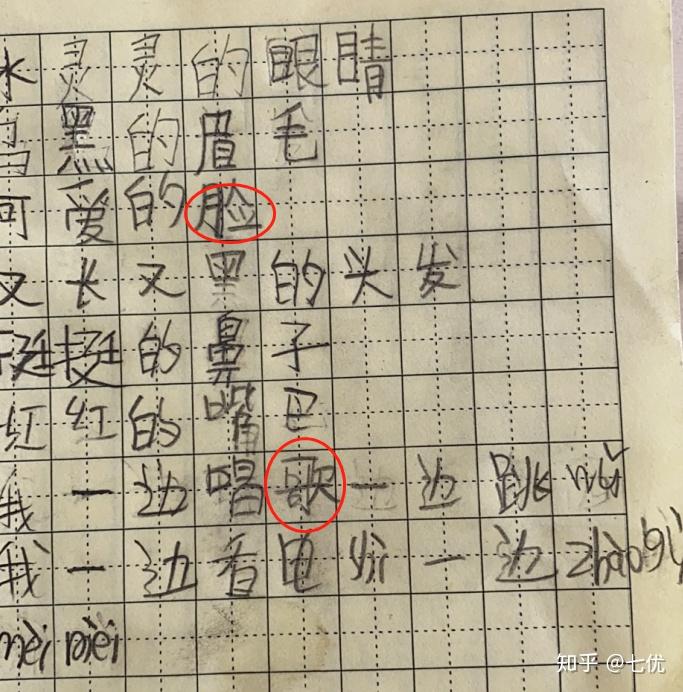 水灵灵的眼睛
乌黑的眉毛
可爱的脸
又长又黑的头发
挺挺的鼻子
红红的嘴巴
我一边唱歌一边跳wǔ
我一边看电 一边
知乎 @七优